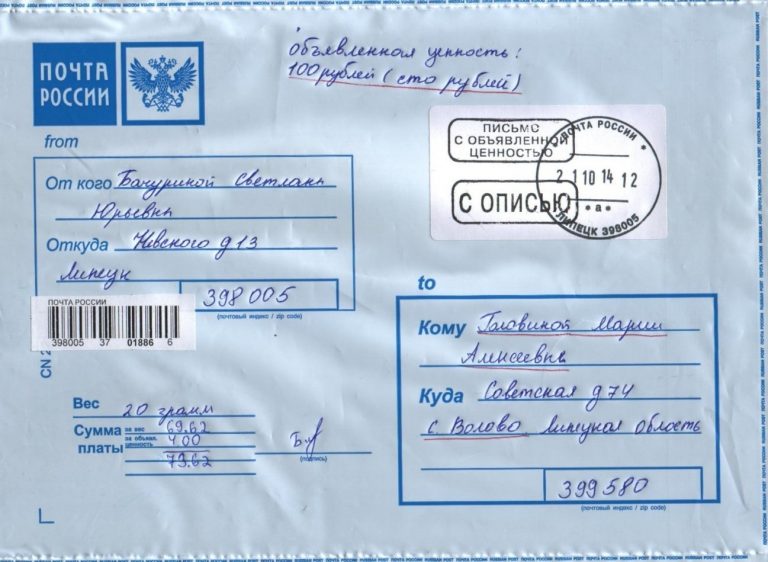 Объявленная ценность:
100 рублей (сто рублей)
ПОЧТА
РОССИИ
ПИСЬМО
С ОБЪЯВЛЕННОЙ
ЦЕННОСТЬЮ
С ОПИСЬЮ
ПОЧТА РОССИИ *
21 10 14 12
* а *
ЛИПЕЦК 398005
from
От кого Бачуриной Светланы
Юрьевны
Откуда Невского д 13
Липецк
398005
(почтовый индекс / zip code)
ПОЧТА РОССИИ
398005 37 01886 6
CN
to
Кому Головиной Марии
Алексеевны
Куда Советская д 74
с Волово Липецкая область
399580
(почтовый индекс / zip code)
Вес 20 грамм
Сумма за вес 69.62
платы за объявл. ценность 4.00
73.62
(подпись)
RUSSIAN POST ПОЧТА РОССИИ